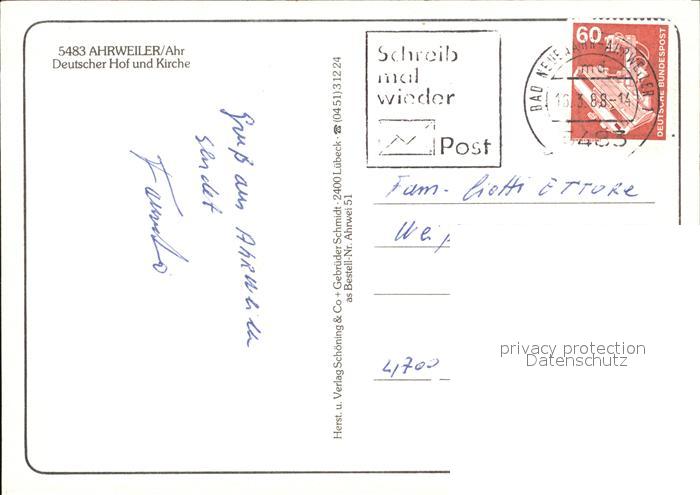 5483 AHRWEILER/Ahr
Deutscher Hof und Kirche
Gruß aus Ahrweiler
sendet
Herst. u. Verlag Schöning & Co + Gebrüder Schmidt · 2400 Lübeck · ☎ (0451) 31224
as Bestell-Nr. Ahrwei 51
Schreib
mal
wieder
Post
BAD NEUENAHR-AHRWEILER 1
md
5483
60
DEUTSCHE BUNDESPOST
Fam. Ciotti ETTORE
4700
privacy protection
Datenschutz